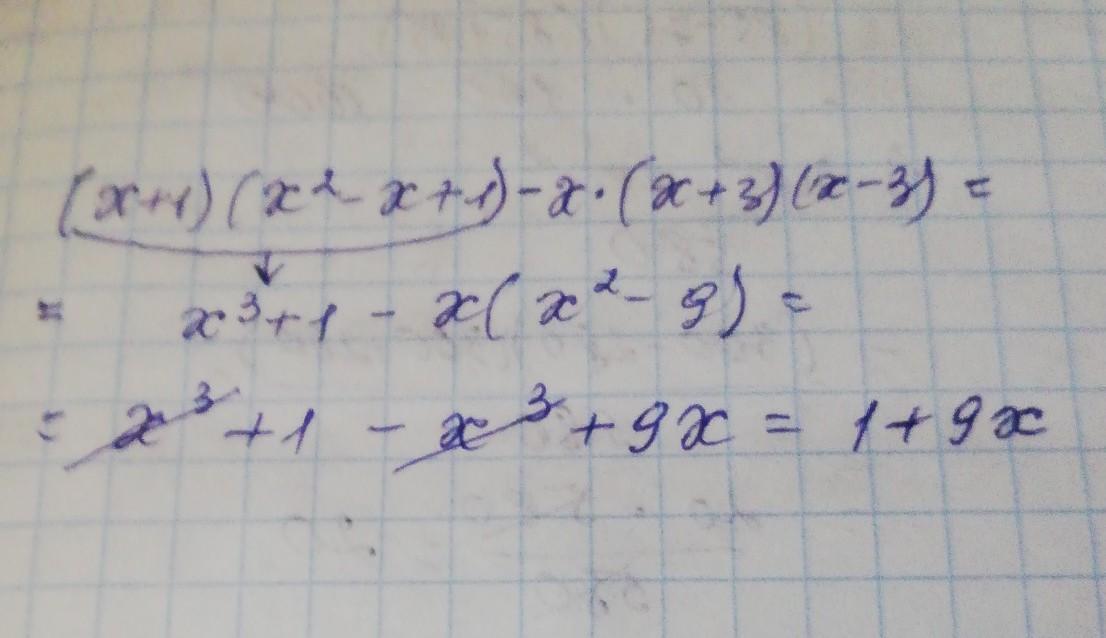 (x+1)(x²-x+1)-x·(x+3)(x-3)=
= x³+1 - x(x²-9)=
= x³+1 - x³+9x = 1+9x